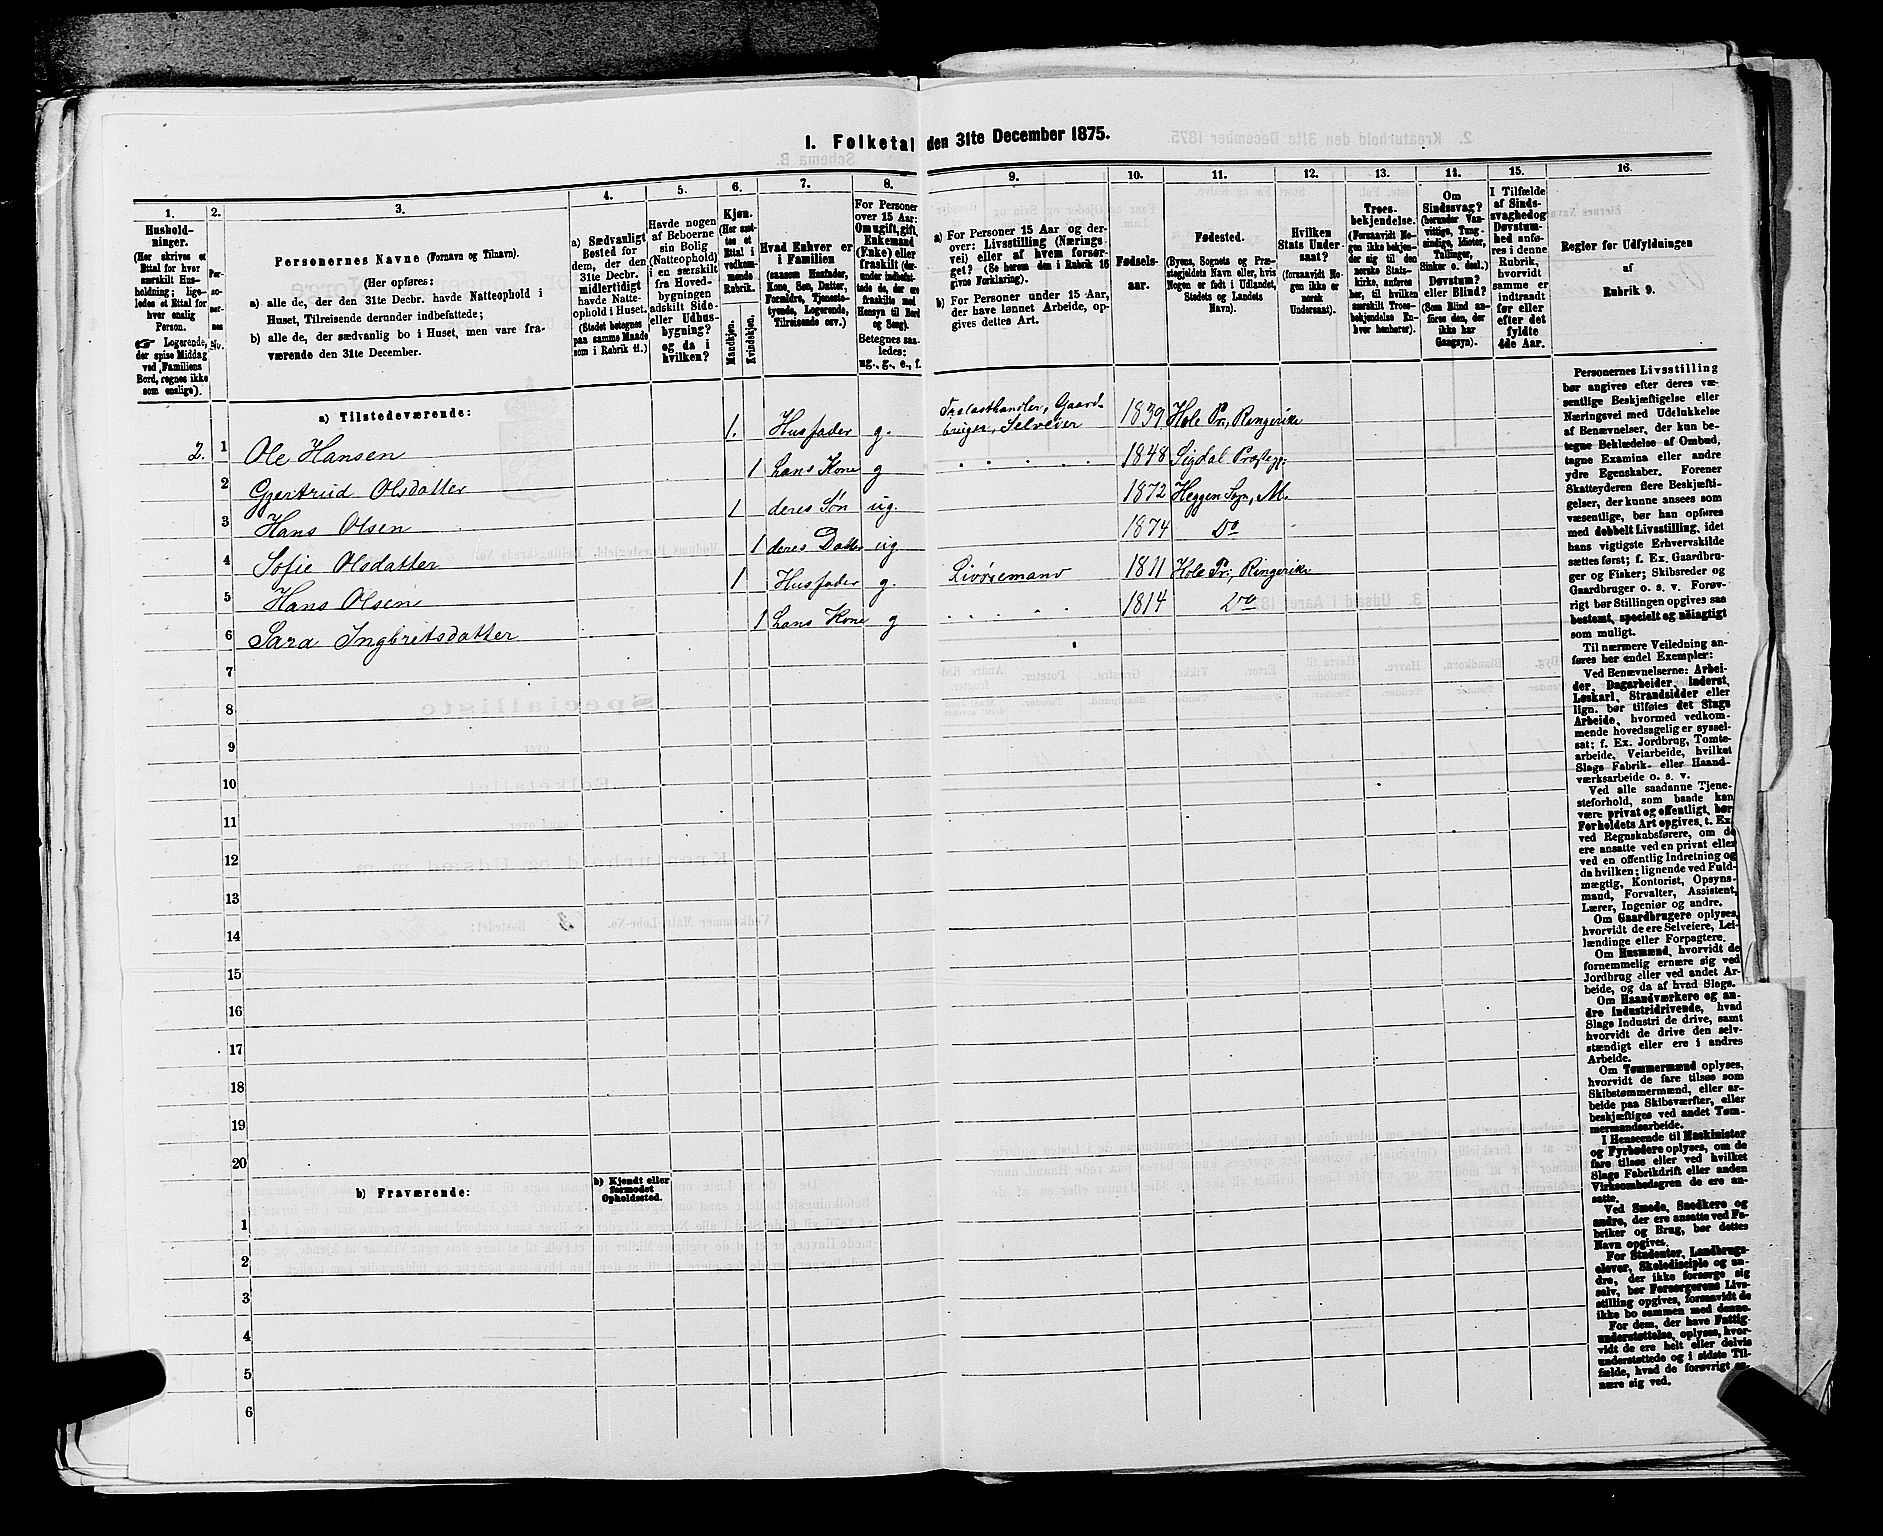 1. Folketal den 31te December 1875.
1.
Hushold-
ninger.
(Her skrives et
Ettal for hver
særskilt Hus-
holdning; lige-
ledes et Ettal for
hver enslig
Person.
☞ Logerende,
der spise Middag
ved Familiens
Bord, regnes ikke
som enslige).
2.
Per-
so-
ner-
nes
No.
3.
Personernes Navne (Fornavn og Tilnavn).
(Her opføres:
a) alle de, der den 31te Decbr. havde Natteophold i
Huset, Tilreisende derunder indbefattede;
b) alle de, der sædvanlig bo i Huset, men vare fra-
værende den 31te December.
4.
a) Sædvanligt
Bosted for
dem, der den
31te Decbr.
midlertidigt
havde Natte-
ophold i Huset.
(Stedet betegnes
paa samme Maade
som i Rubrik 11.)
5.
Havde nogen
af Beboerne
sin Bolig
(Natteophold)
i en særskilt
fra Hoved-
bygningen
adskilt Side-
eller Udhus-
bygning?
og da i
hvilken?
6.
Kjøn.
(Her sæt-
tes et
Ettal i
vedkom-
mende
Rubrik.
Mandkjøn.
Kvindekjøn.
7.
Hvad Enhver er
i Familien
(saasom Husfader,
Kone, Søn, Datter,
Forældre, Tjeneste-
tyende, Logerende,
Tilreisende osv.)
8.
For Personer
over 15 Aar:
Om ugift, gift,
Enkemand
(Enke) eller
fraskilt
Betegnes saa-
ledes:
ug., g., e., f.
9.
a) For Personer 15 Aar og der-
over: Livsstilling (Nærings-
vei) eller af hvem forsør-
get? (Se herom den i Rubrik 16
givne Forklaring).
b) For Personer under 15 Aar,
der have lønnet Arbeide, op-
gives dettes Art.
10.
Fødsels-
aar.
11.
Fødested.
(Byens, Sognets og Præ-
stegjeldets Navn eller, hvis
Nogen er født i Udlandet,
Stedets og Landets
Navn).
12.
Hvilken
Stats Under-
saat?
(forsaavidt No-
gen ikke er
norsk
Undersaat).
13.
Troes-
bekjendelse.
(Forsaavidt No-
gen ikke bekjen-
der sig til den
norske Stats-
kirke, anføres
her, til hvilken
særskilt Troes-
bekjendelse En-
hver henhører).
14.
Om
Sindssvag?
(herunder Van-
vittige, Tung-
sindige, Idioter,
Tullinger,
Sinker o. desl.)
Døvstum?
eller Blind?
(Som Blind an-
føres den, der
ikke har
Gangsyn).
15.
I Tilfælde
af Sinds-
svaghed og
Døvstum-
hed anfø-
res i denne
Rubrik,
hvorvidt
samme er
indtraadt
før eller
efter det
fyldte
4de Aar.
16.
Regler for Udfyldningen
af
Rubrik 9.
a) Tilstedeværende:
2. 1 Ole Hansen 1. Husfader g. Trælasthandler, Gaard-
bruger, Selveier 1839 Hole Pr., Ringerike
2 Gjertrud Olsdatter 1 hans Kone g 1848 Sigdal Præstegj:
3 Hans Olsen 1 deres Søn ug. 1872 Heggen Sogn, M.
4 Sofie Olsdatter 1 deres Datter ug 1874 Do
5 Hans Olsen 1 Husfader g. Livøremand 1811 Hole Pr., Ringerike
6 Sara Ingbretsdatter 1 hans Kone g 1814 Do
7
8
9
10
11
12
13
14
15
16
17
18
19
20
b) Fraværende:
b) Kjendt eller
formodet
Opholdssted.
1
2
3
4
5
6
Personernes Livsstilling
bør angives efter deres væ-
sentlige Beskjæftigelse eller
Næringsvei med Udelukkelse
af Benævnelser, der kun be-
tegne Beklædelse af Ombud,
tagne Examina eller andre
ydre Egenskaber. Forener
Skatteyderen flere Beskjæfti-
gelser, der kunne ansees som
væsentlige, bør han opføres
med dobbelt Livsstilling, idet
hans vigtigste Erhvervskilde
sættes først; f. Ex. Gaardbru-
ger og Fisker; Skibsreder og
Gaardbruger o. s. v. Forøv-
rigt bør Stillingen opgives saa
bestemt, specielt og nøiagtigt
som muligt.
Til nærmere Veiledning an-
føres her endel Exempler:
Ved Benævnelserne: Arbei-
der, Dagarbeider, Inderst,
Løskarl, Strandsidder eller
lign. bør tilføies det Slags
Arbeide, hvormed vedkom-
mende hovedsagelig er syssel-
sat; f. Ex. Jordbrug, Tomte-
arbeide, Veiarbeide, hvilket
Slags Fabrik- eller Haand-
værksarbeide o. s. v.
Ved alle saadanne Tjene-
steforhold, som baade kan
være privat og offentligt, bør
Forholdets Art opgives, t. Ex.
ved Regnskabsførere, om de
ere ansatte ved en privat eller
ved en offentlig Indretning og
da hvilken; lignende ved Fuld-
mægtig, Kontorist, Opsyns-
mand, Forvalter, Assistent,
Lærer, Ingeniør og andre.
Om Gaardbrugere oplyses,
hvorvidt de ere Selveiere, Lei-
lændinge eller Forpagtere.
Om Husmænd, hvorvidt de
fornemmelig ernære sig ved
Jordbrug eller ved andet Ar-
beide, og da af hvad Slags.
Om Haandværkere og an-
dre Industridrivende, hvad
Slags Industri de drive, samt
hvorvidt de drive den selv-
stændigt eller ere i andres
Arbeide.
Om Tømmermænd oplyses,
hvorvidt de fare tilsøs som
Skibstømmermænd, eller ar-
beide paa Skibsværfter, eller
beskjæftiges ved andet Tøm-
mermandsarbeide.
I Henseende til Maskinister
og Fyrbødere oplyses, om de
fare tilsøs eller ved hvilket
Slags Fabrikdrift eller anden
Virksomhedsgren de ere an-
satte.
Ved Smede, Snedkere og
andre, der ere ansatte ved Fa-
briker og Brug, bør dettes
Navn opgives.
For Studenter, Landbrugs-
elever, Skoledisciple og an-
dre, der ikke forsørge sig
selv, bør Forsørgerens Livs-
stilling opgives, forsaavidt de
ikke bo sammen med denne.
For dem, der have Fattig-
understøttelse, oplyses, hvor-
vidt de ere helt eller delvis
understøttede og i sidste Til-
fælde, hvad de forøvrigt er-
nære sig ved.